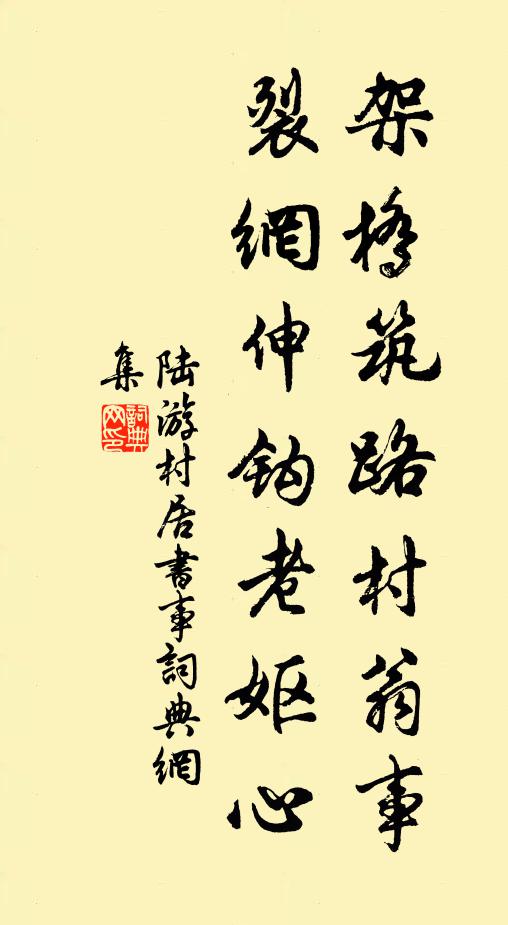 架橋筑路村翁事
裂網伸鈎老妪心
陆游村居書事詞典網
集
詞典网印